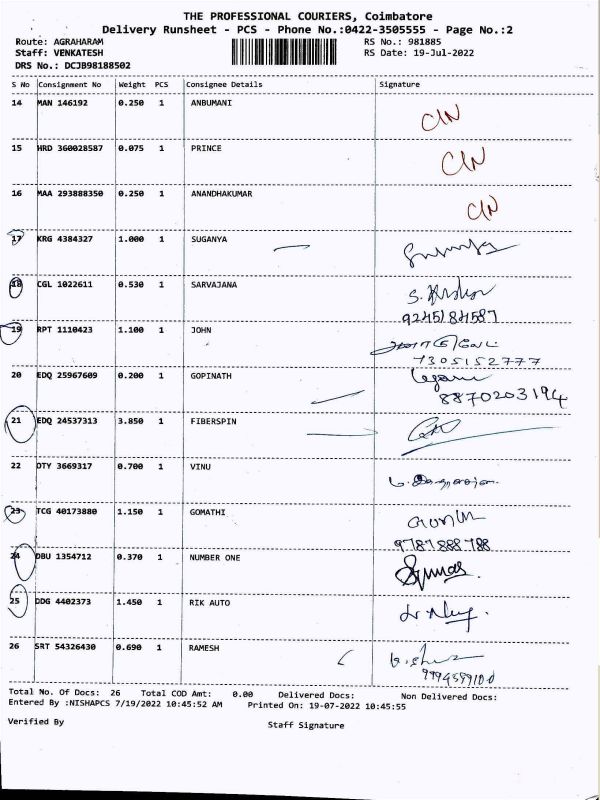 THE PROFESSIONAL COURIERS, Coimbatore
Delivery Runsheet - PCS - Phone No.:0422-3505555 - Page No.:2
Route: AGRAHARAM RS No.: 981885
Staff: VENKATESH RS Date: 19-Jul-2022
DRS No.: DCJB98188502
S No Consignment No Weight PCS Consignee Details Signature
14 MAN 146192 0.250 1 ANBUMANI C/N
15 HRD 360028587 0.075 1 PRINCE C/N
16 MAA 293888350 0.250 1 ANANDHAKUMAR C/N
17 KRG 4384327 1.000 1 SUGANYA
18 CGL 1022611 0.530 1 SARVAJANA
19 RPT 1110423 1.100 1 JOHN
7305152777
20 EDQ 25967609 0.200 1 GOPINATH
8870203194
21 EDQ 24537313 3.850 1 FIBERSPIN
22 OTY 3669317 0.700 1 VINU
23 TCG 40173880 1.150 1 GOMATHI
24 DBU 1354712 0.370 1 NUMBER ONE
25 DDG 4402373 1.450 1 RIK AUTO
26 SRT 54326430 0.690 1 RAMESH
Total No. Of Docs: 26 Total COD Amt: 0.00 Delivered Docs: Non Delivered Docs:
Entered By :NISHAPCS 7/19/2022 10:45:52 AM Printed On: 19-07-2022 10:45:55
Verified By Staff Signature